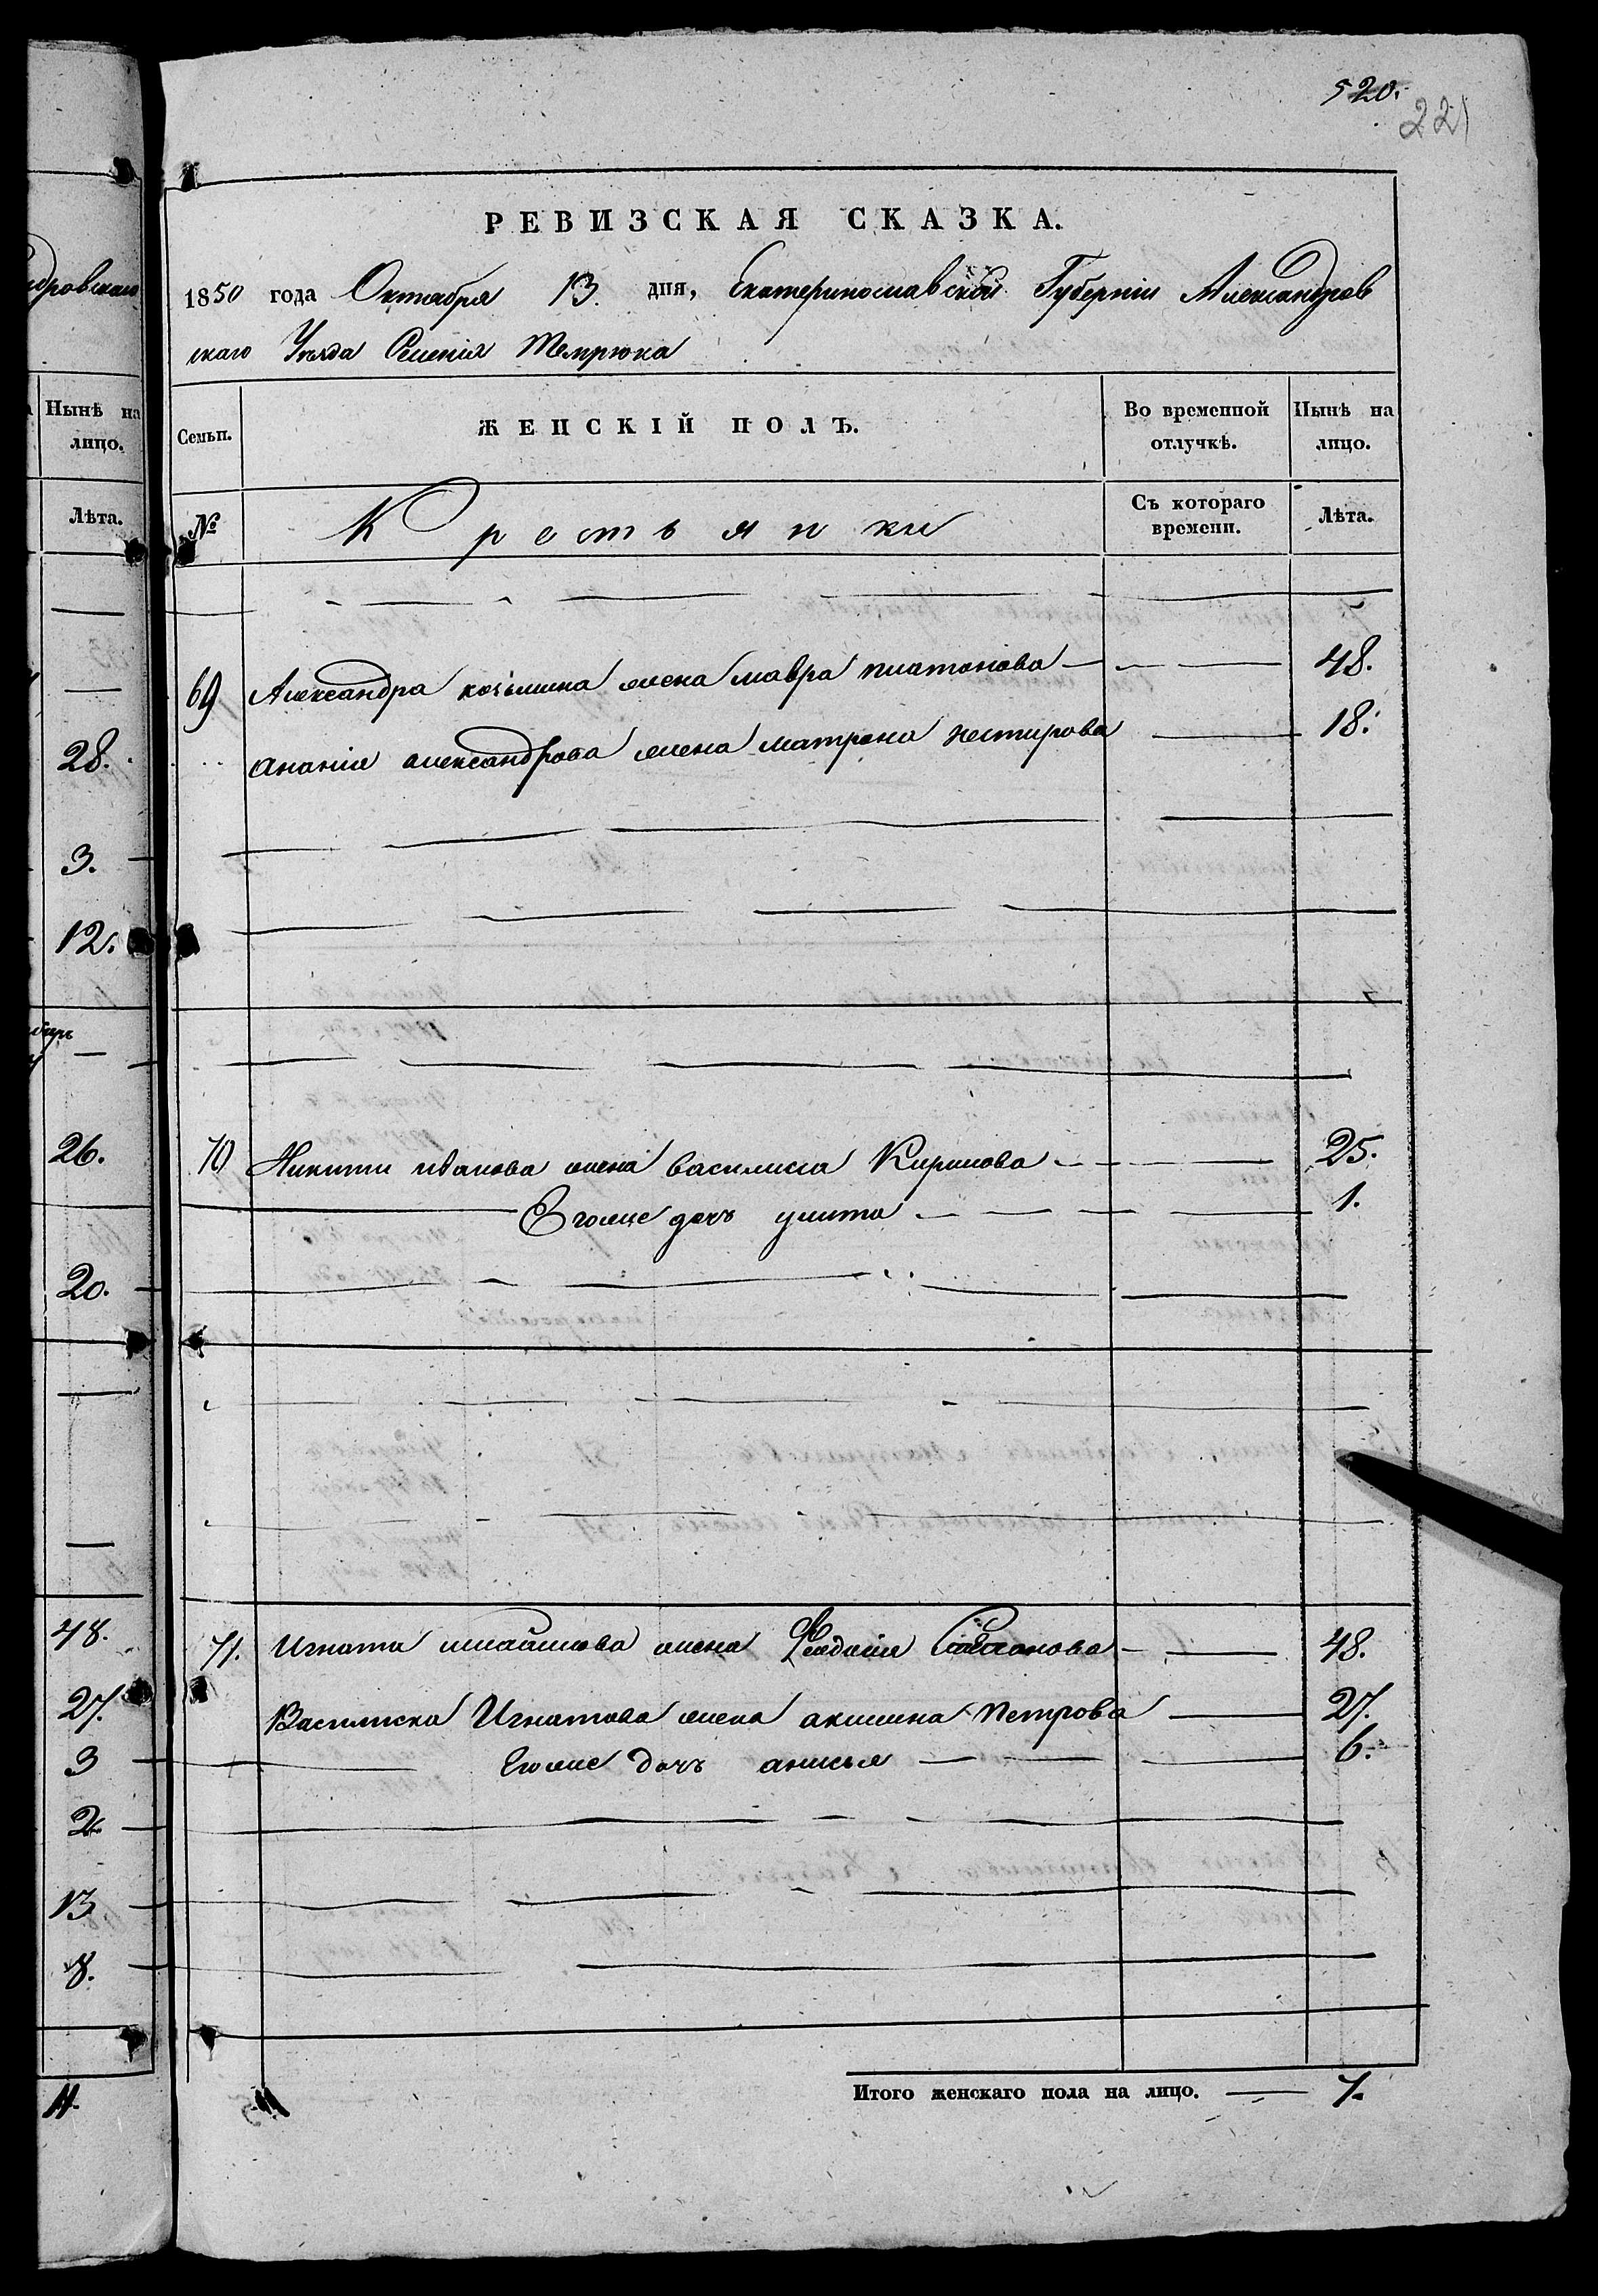 520.
221
РЕВИЗСКАЯ СКАЗКА.
1850 года Октября 13. дня, Екатеринославской Губерніи Александров
скаго Уѣзда Селенія Темрюка
Нынѣ на лицо.
Лѣта.
28.
3.
12.
26.
20.
48.
27.
3
2
13
8.
11.
Семьи.
ЖЕНСКІЙ ПОЛЪ.
Во временной отлучкѣ.
Нынѣ на лицо.
№
Крестьянки
Съ котораго времени.
Лѣта.
69 Александра козьмина жена мавра платонова 48.
ананія александрова жена матрона нестирова 18.
70 Никиты иванова жена василиса Кирилова 25.
Егоже дочъ улита 1.
71. Игната жена Феодосія 48.
Василиска Игнатова жена акилина петрова 27.
Егоже дочъ анисья 6.
Итого женскаго пола на лицо. 7.